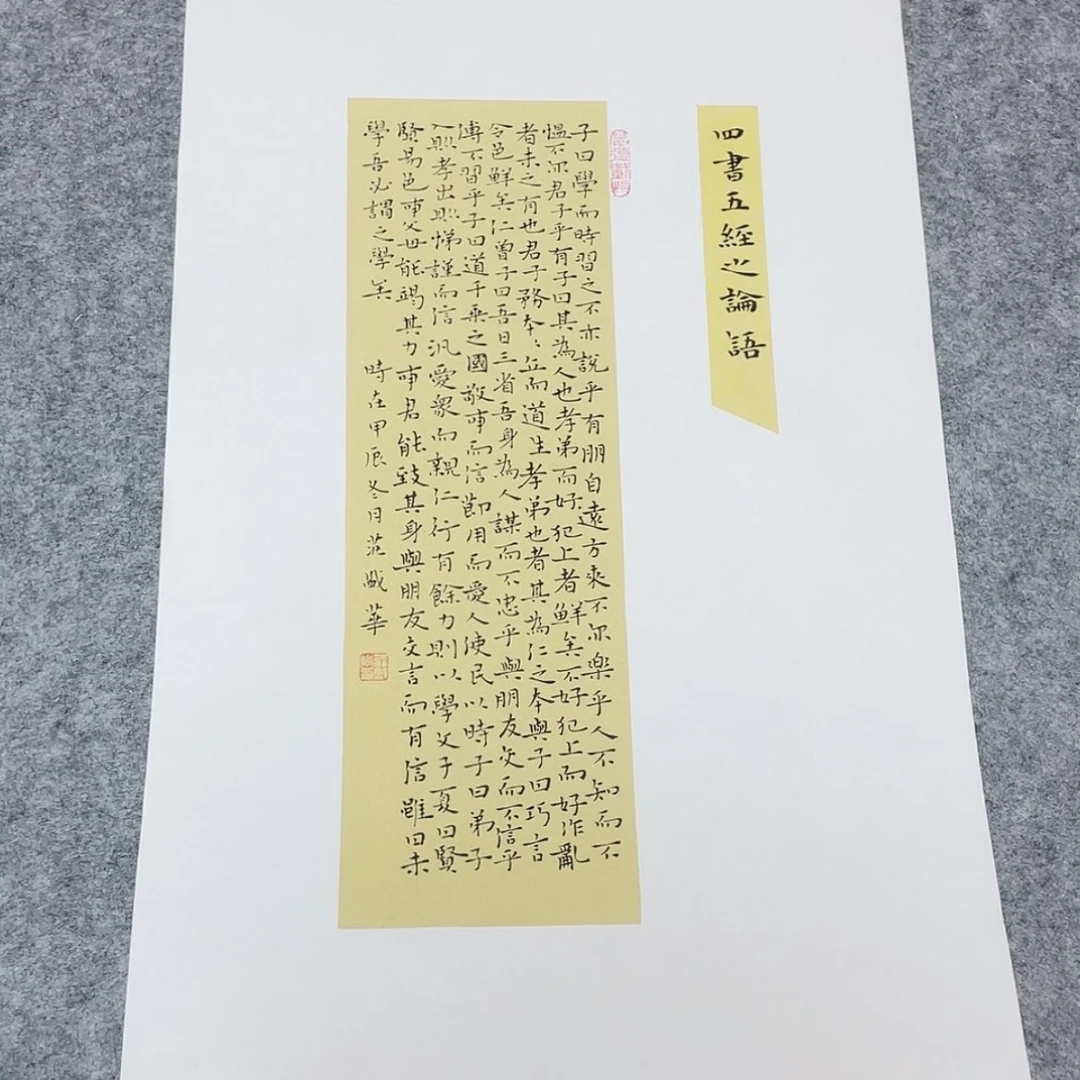 四書五經之論語
子曰學而時習之不亦說乎有朋自遠方來不亦樂乎人不知而不
慍不亦君子乎有子曰其為人也孝弟而好犯上者鮮矣不好犯上而好作亂
者未之有也君子務本〻立而道生孝弟也者其為仁之本與子曰巧言
令色鮮矣仁曾子曰吾日三省吾身為人謀而不忠乎與朋友交而不信乎
傳不習乎子曰道千乘之國敬事而信節用而愛人使民以時子曰弟子
入則孝出則悌謹而信汎愛眾而親仁行有餘力則以學文子夏曰賢
賢易色事父母能竭其力事君能致其身與朋友交言而有信雖曰未
學吾必謂之學矣 時在甲辰冬日莊晟華